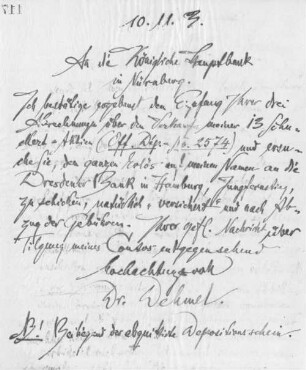 117
10. 11. 3.
An die Königliche Hauptbank
in Nürnberg.
Ich bestätige ergebenst den Empfang Ihrer drei
Abrechnungen über den Verkauf meiner 13 Schu-
ckert-Aktien (Eff. Rgn. No. 2574) und ersu-
che Sie, den ganzen Erlös auf meinen Namen an die
Dresdener Bank in Hamburg, Jungfernstieg,
zu schicken, natürlich versichert und nach Ab-
zug der Gebühren. Ihrer gefl. Nachricht über
Tilgung meines Contos entgegensehend
hochachtungsvoll
Dr. Dehmel.
NB! Beiliegend der abquittirte Depositenschein.